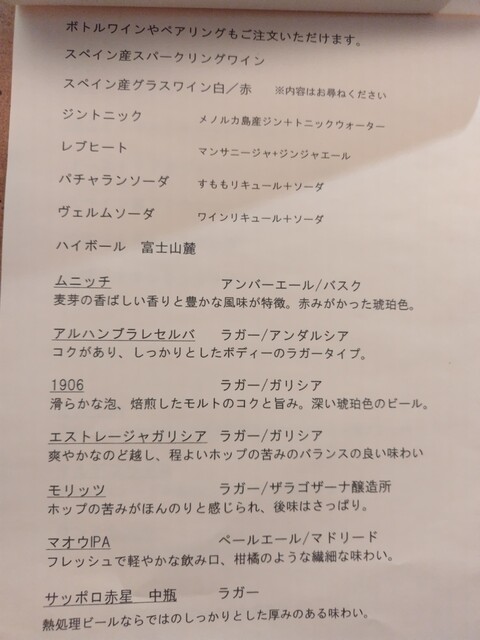 ボトルワインやペアリングもご注文いただけます。
スペイン産スパークリングワイン
スペイン産グラスワイン白／赤　※内容はお尋ねください
ジントニック　メノルカ島産ジン＋トニックウォーター
レブヒート　マンサニージャ+ジンジャエール
パチャランソーダ　すももリキュール＋ソーダ
ヴェルムソーダ　ワインリキュール＋ソーダ
ハイボール　富士山麓
ムニッチ　アンバーエール/バスク
麦芽の香ばしい香りと豊かな風味が特徴。赤みがかった琥珀色。
アルハンブラレセルバ　ラガー/アンダルシア
コクがあり、しっかりとしたボディーのラガータイプ。
1906　ラガー/ガリシア
滑らかな泡、焙煎したモルトのコクと旨み。深い琥珀色のビール。
エストレージャガリシア　ラガー/ガリシア
爽やかなのど越し、程よいホップの苦みのバランスの良い味わい
モリッツ　ラガー/ザラゴザーナ醸造所
ホップの苦みがほんのりと感じられ、後味はさっぱり。
マオウIPA　ペールエール/マドリード
フレッシュで軽やかな飲み口、柑橘のような繊細な味わい。
サッポロ赤星　中瓶　ラガー
熱処理ビールならではのしっかりとした厚みのある味わい。